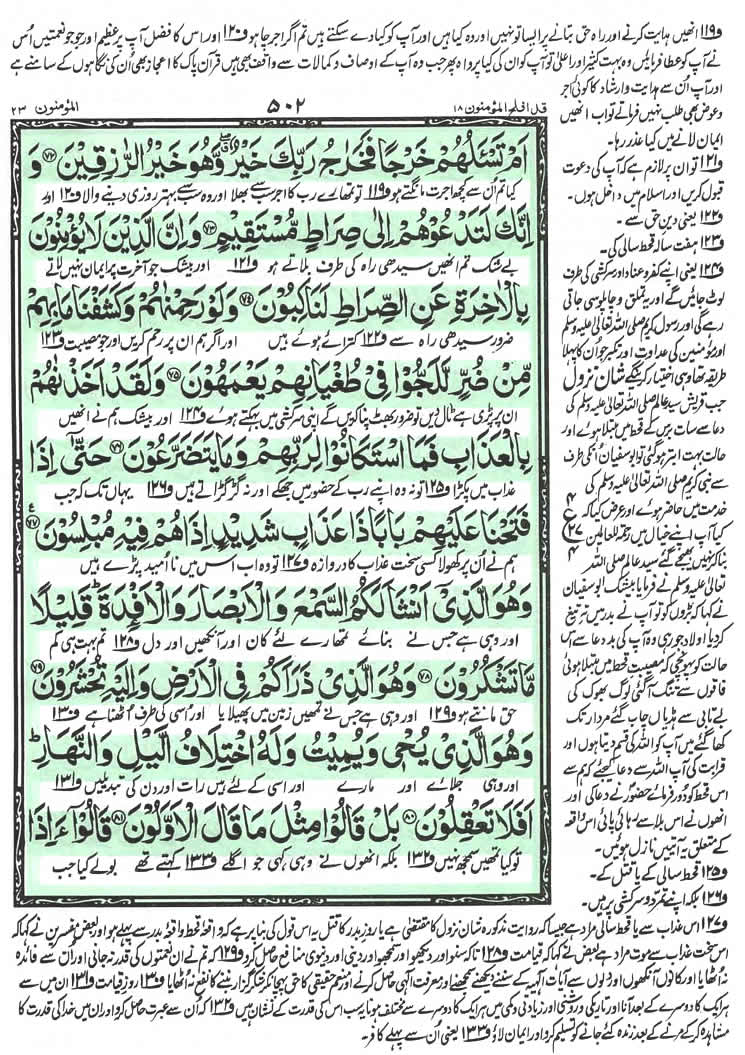 و۱۱۹ انھیں ہدایت کرنے اور راہ حق بتانے پر ایسا تو نہیں اور وہ کیا ہیں اور آپ کو کیا دے سکتے ہیں تم اگر اجر چاہو و۱۲۰ اور اس کا فضل آپ پر عظیم اور جو جو نعمتیں اُس
نے آپ کو عطا فرمائیں وہ بہت کثیر اور اعلیٰ تو آپ کو ان کی کیا پرواہ پھر جب وہ آپ کے اوصاف و کمالات سے واقف بھی ہیں قرآن پاک کا اعجاز بھی اُن کی نگاہوں کے سامنے ہے
اور آپ اُن سے ہدایت و ارشاد کا کوئی اجر
و عوض بھی طلب نہیں فرماتے تو اب انھیں
ایمان لانے میں کیا عذر رہا۔
و۱۲۱ تو ان پر لازم ہے کہ آپ کی دعوت
قبول کریں اور اسلام میں داخل ہوں۔
و۱۲۲ یعنی دین حق سے۔
و۱۲۳ ہفت سالہ قحط سالی کی۔
و۱۲۴ یعنی اپنے کفر و عناد اور سرکشی کی طرف
لوٹ جائیں گے اور یہ تملق و چاپلوسی جاتی
رہے گی اور رسول کریم صلی اللہ تعالیٰ علیہ وسلم
اور مؤمنین کی عداوت اور تکبر جو ان کا پہلا
طریقہ تھا وہی اختیار کریں گے شان نزول
جب قریش سید عالم صلی اللہ تعالیٰ علیہ وسلم کی
دعا سے سات برس کے قحط میں مبتلا ہوئے اور
حالت بہت ابتر ہو گئی تو ابو سفیان اُن کی طرف
سے نبی کریم صلی اللہ تعالیٰ علیہ وسلم کی
خدمت میں حاضر ہوئے اور عرض کیا کہ
کیا آپ اپنے خیال میں رحمۃ للعالمین
بنا کر نہیں بھیجے گئے سید عالم صلی اللہ
تعالیٰ علیہ وسلم نے فرمایا بیشک ابو سفیان
نے کہا کہ بڑوں کو تو آپ نے بدر میں تہ تیغ
کر دیا اولاد جو رہی وہ آپ کی بد دعا سے اس
حالت کو پہونچی کہ مصیبت قحط میں مبتلا ہوئی
فاقوں سے تنگ آ گئی لوگ بھوک کی
بے تابی سے ہڈیاں چاب گئے مردار تک
کھا گئے میں آپ کو اللہ کی قسم دیتا ہوں اور
قرابت کی آپ اللہ سے دعا کیجئے کہ ہم سے
اس قحط کو دور فرمائے حضور نے دعا کی اور
انھوں نے اس بلا سے رہائی پائی اس واقعہ
کے متعلق یہ آیتیں نازل ہوئیں۔
و۱۲۵ قحط سالی کے یا قتل کے۔
و۱۲۶ بلکہ اپنے تمرد و سرکشی پر ہیں۔
قد افلح المؤمنون ۱۸ ۵۰۲ المؤمنون ۲۳
اَمْ تَسْـَٔلُهُمْ خَرْجًا فَخَرَاجُ رَبِّكَ خَيْرٌ وَّهُوَ خَيْرُ الرّٰزِقِيْنَ ﴿۷۲﴾ وَ
کیا تم اُن سے کچھ اجرت مانگتے ہو و۱۱۹ تو تمھارے رب کا اجر سب سے بھلا اور وہ سب سے بہتر روزی دینے والا و۱۲۰ اور
اِنَّكَ لَتَدْعُوْهُمْ اِلٰى صِرَاطٍ مُّسْتَقِيْمٍ ﴿۷۳﴾ وَاِنَّ الَّذِيْنَ لَا يُؤْمِنُوْنَ
بے شک تم انھیں سیدھی راہ کی طرف بلاتے ہو و۱۲۱ اور بیشک جو آخرت پر ایمان نہیں لاتے
بِالْاٰخِرَةِ عَنِ الصِّرَاطِ لَنٰكِبُوْنَ ﴿۷۴﴾ وَلَوْ رَحِمْنٰهُمْ وَكَشَفْنَا مَا بِهِمْ
ضرور سیدھی راہ سے و۱۲۲ کترائے ہوئے ہیں اور اگر ہم ان پر رحم کریں اور جو مصیبت و۱۲۳
مِّنْ ضُرٍّ لَّلَجُّوْا فِيْ طُغْيَانِهِمْ يَعْمَهُوْنَ ﴿۷۵﴾ وَلَقَدْ اَخَذْنٰهُمْ
ان پر پڑی ہے ٹال دیں تو ضرور بھٹ پنا کریں گے اپنی سرکشی میں بہکتے ہوئے و۱۲۴ اور بیشک ہم نے انھیں
بِالْعَذَابِ فَمَا اسْتَكَانُوْا لِرَبِّهِمْ وَمَا يَتَضَرَّعُوْنَ ﴿۷۶﴾ حَتّٰۤى اِذَا
عذاب میں پکڑا و۱۲۵ تو نہ وہ اپنے رب کے حضور میں جھکے اور نہ گڑگڑاتے ہیں و۱۲۶ یہاں تک کہ جب
فَتَحْنَا عَلَيْهِمْ بَابًا ذَا عَذَابٍ شَدِيْدٍ اِذَا هُمْ فِيْهِ مُبْلِسُوْنَ ﴿۷۷﴾
ہم نے اُن پر کھولا کسی سخت عذاب کا دروازہ و۱۲۷ تو وہ اب اس میں نا اُمید پڑے ہیں
وَهُوَ الَّذِيْۤ اَنْشَاَ لَكُمُ السَّمْعَ وَالْاَبْصَارَ وَالْاَفْـِٕدَةَ ؕ قَلِيْلًا
اور وہی ہے جس نے بنائے تمھارے لئے کان اور آنکھیں اور دل و۱۲۸ تم بہت ہی کم
مَّا تَشْكُرُوْنَ ﴿۷۸﴾ وَهُوَ الَّذِيْ ذَرَاَكُمْ فِي الْاَرْضِ وَاِلَيْهِ تُحْشَرُوْنَ ﴿۷۹﴾
حق مانتے ہو و۱۲۹ اور وہی ہے جس نے تمھیں زمین میں پھیلایا اور اُسی کی طرف اُٹھنا ہے و۱۳۰
وَهُوَ الَّذِيْ يُحْيٖ وَيُمِيْتُ وَلَهُ اخْتِلَافُ الَّيْلِ وَالنَّهَارِ ؕ
اور وہی جلائے اور مارے اور اسی کے لئے ہیں رات اور دن کی تبدیلیں و۱۳۱
اَفَلَا تَعْقِلُوْنَ ﴿۸۰﴾ بَلْ قَالُوْا مِثْلَ مَا قَالَ الْاَوَّلُوْنَ ﴿۸۱﴾ قَالُوْۤا ءَاِذَا
تو کیا تمھیں سمجھ نہیں و۱۳۲ بلکہ انھوں نے وہی کہی جو اگلے و۱۳۳ کہتے تھے بولے کیا جب
و۱۲۷ اس عذاب سے یا قحط سالی مراد ہے جیسا کہ روایت مذکورہ شان نزول کا مقتضی ہے یا روز بدر کا قتل یہ اس قول کی بنا پر ہے کہ واقعۂ قحط واقعۂ بدر سے پہلے ہو اور بعض مفسرین نے کہا کہ
اس سخت عذاب سے موت مراد ہے بعض نے کہا کہ قیامت و۱۲۸ تاکہ سنو اور دیکھو اور سمجھو اور دینی اور دنیوی منافع حاصل کرو و۱۲۹ کہ تم نے ان نعمتوں کی قدر نہ جانی اور اُن سے فائدہ
نہ اُٹھایا اور کانوں آنکھوں اور دلوں سے آیات الٰہیہ کے سننے دیکھنے سمجھنے اور معرفت الٰہی حاصل کرنے اور منعم حقیقی کا حق پہچان کر شکر گزار بننے کا نفع نہ اُٹھایا و۱۳۰ روز قیامت و۱۳۱ ان میں سے
ہر ایک کا دوسرے کے بعد آنا اور تاریکی و روشنی اور زیادتی و کمی میں ہر ایک کا دوسرے سے مختلف ہونا یہ سب اس کی قدرت کے نشان ہیں و۱۳۲ کہ اُن سے عبرت حاصل کرو اور ان میں خدا کی قدرت کا
مشاہدہ کر کے مرنے کے بعد زندہ کئے جانے کو تسلیم کرو اور ایمان لاؤ و۱۳۳ یعنی اُن سے پہلے کافر۔